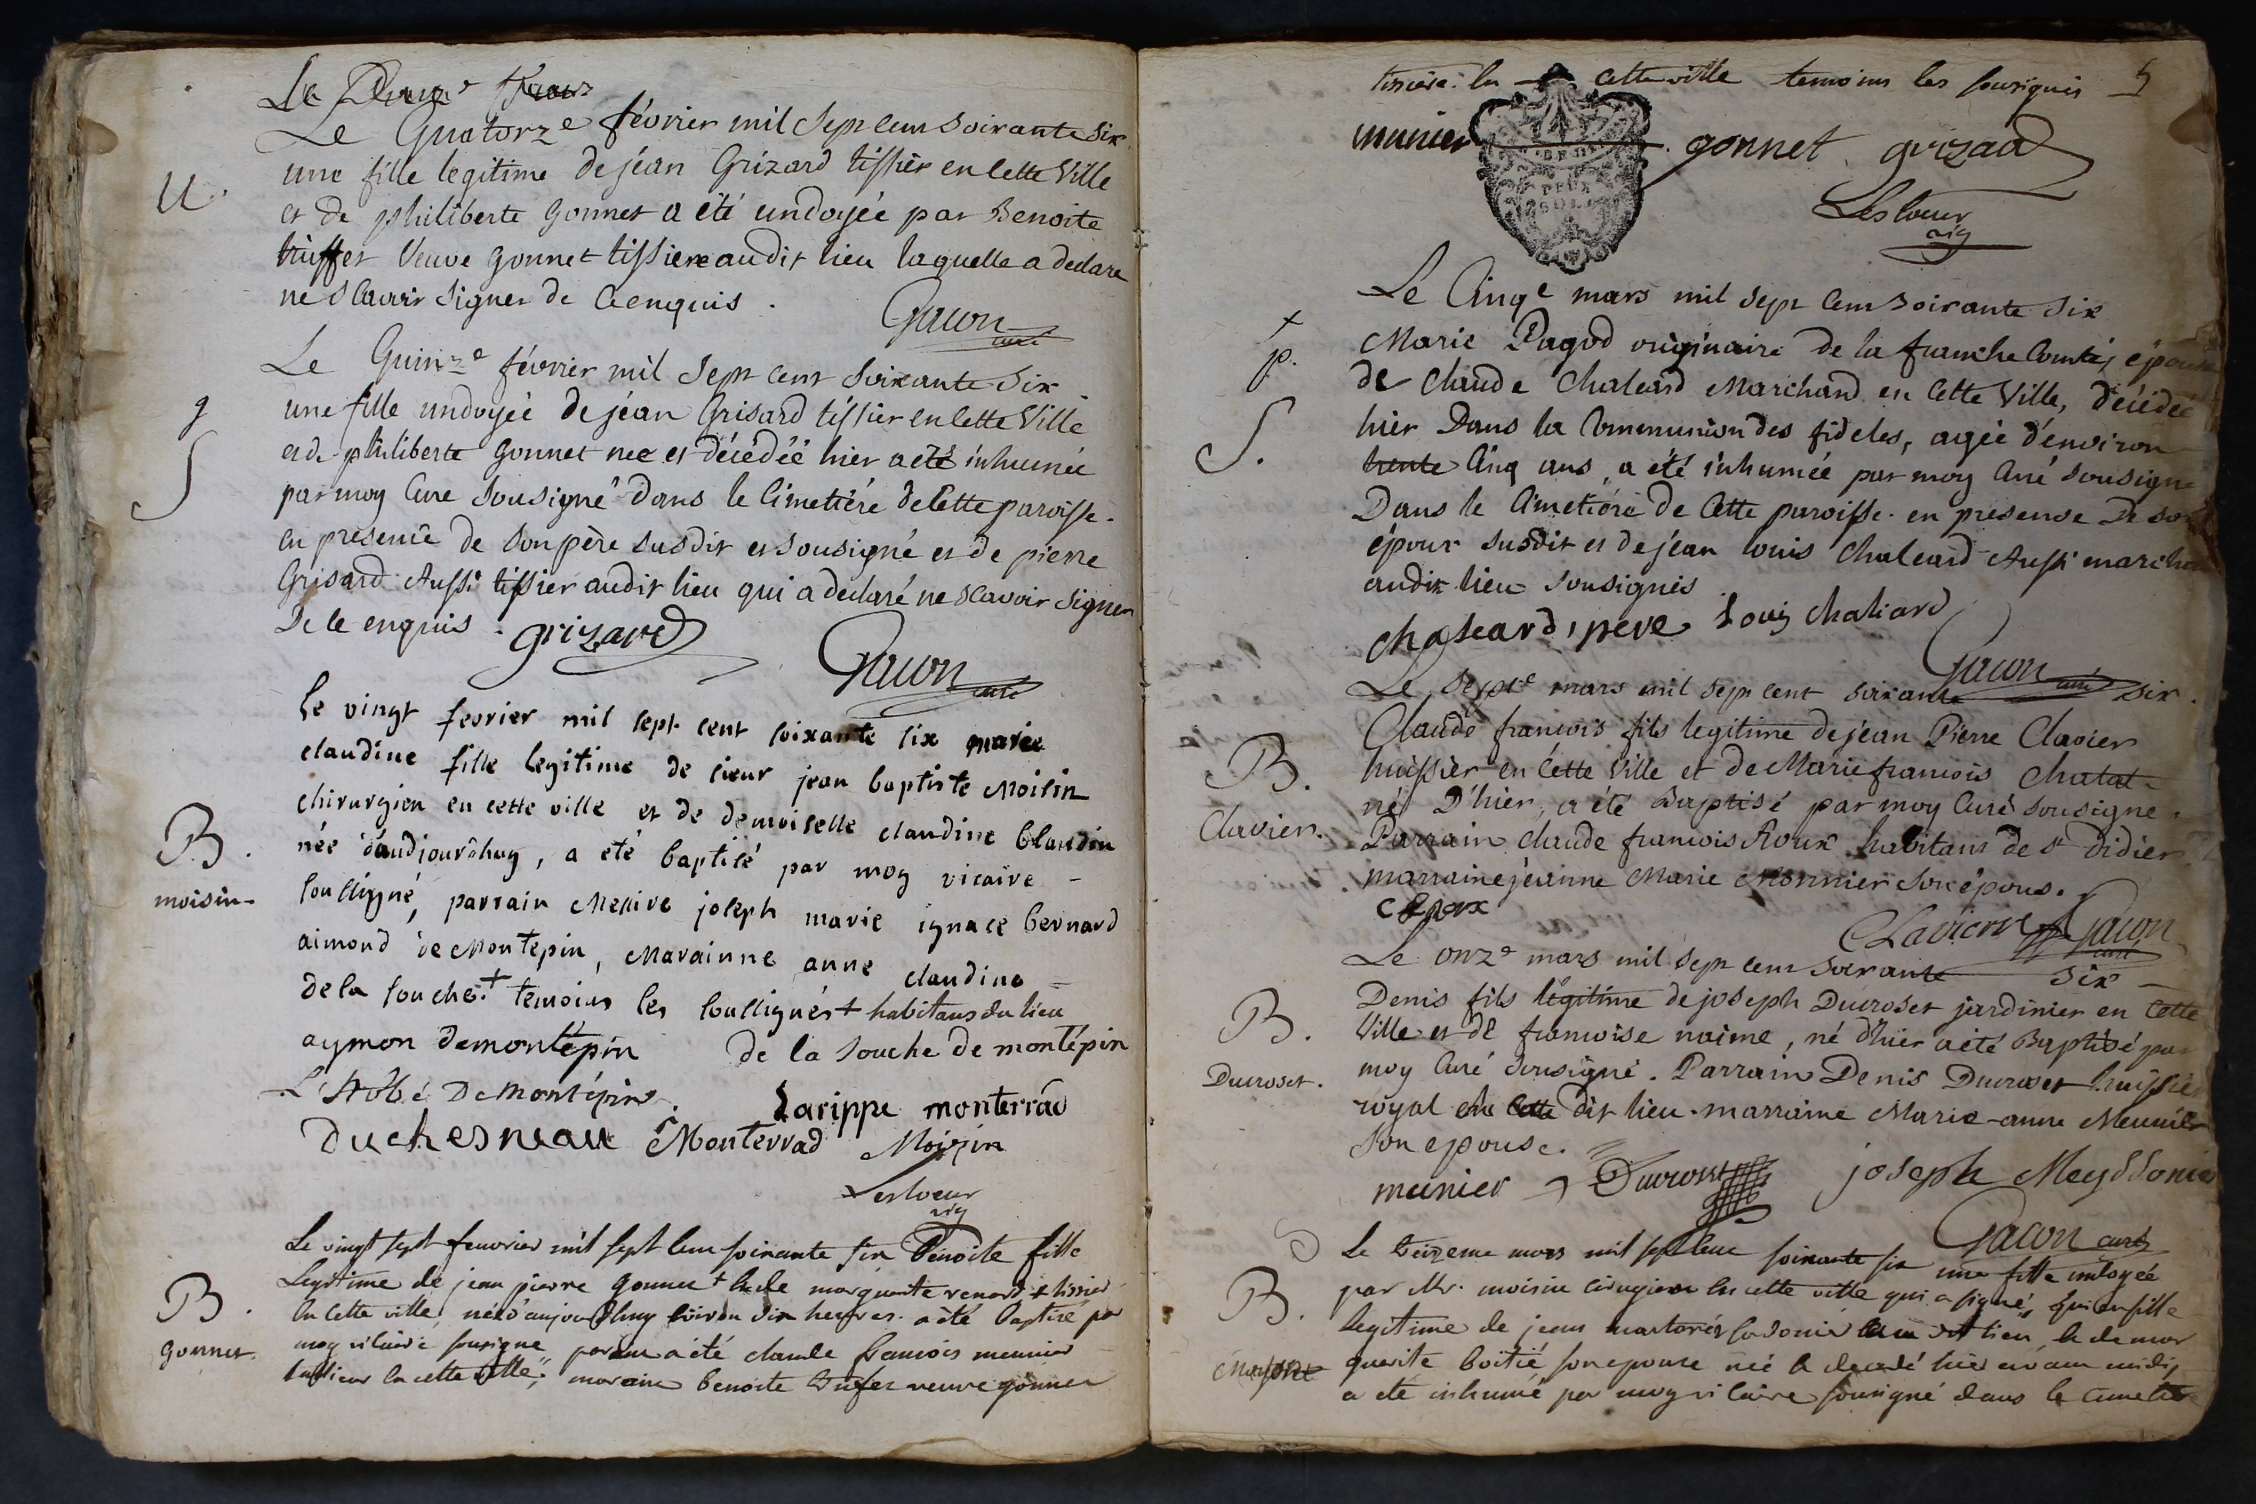 Le Quatorze février mil sept cent soixante six
U.
une fille legitime de jéan Grizard tissier en cette Ville
et de philiberte gonnet a été undoyée par Benoite
truffet Veuve gonnet tissiere audit lieu laquelle a declaré
ne sçavoir signer de ce enquis.
Gacon curé
Le Quinze février mil sept cent soixante six
une fille undoyée de jéan Grisard tissier en cette Ville
S
et de philiberte gonnet née et décédée hier a été inhumée
par moy Curé sousigné dans le Cimettiére de Cette paroisse.
en presence de son père susdit et sousigné et de pierre
Grisard Aussi tissier audit lieu qui a declaré ne sçavoir signer
De ce enquis. grizard
Gacon curé
Le vingt fevrier mil sept cent soixante six marie
claudine fille legitime de sieur jean baptiste Moisin
chirurgien en cette ville et de demoiselle claudine blandin
B.
née d'audjourdhuy, a eté baptisé par moy vicaire -
moisin
soussigné, parrain Messire joseph marie ignace bernard
aimond de Montepin, Marainne anne claudine
de la souche.+ temoins les soussignés + habitans du lieu
aymon demontépin de la souche de montépin
L'Abbé De Montépin. Larippe monterrad
Duchesneau Monterrad Moizin
Lescoeur vic
Le vingt sept feuvrier mil sept cent soixante six Benoite fille
Legitime de jean pierre gonnet + & de marguerite renard + tissier
B.
en cette ville, née d'aujourdhuy environ dix heures a été baptisé par
gonnet.
moy vicaire sousigne parain a été claude francois meunier
en cette ville, maraine benoite trufet veuve gonnet
5
en cette ville temoins les sousignés
munier gonnet grizard
DEUX SOLS
Lescoeur vic
Le Cinqe mars mil sept cent soixante six
+
p.
Marie Pagod originaire de la franche Comté, épouse
de Claude Chaleard Marchand en Cette Ville, décédée
S.
hier Dans la Communion des fideles, agée d'environ
trente Cinq ans, a été inhumée par moy Curé sousigné
Dans le Cimetiére de Cette paroisse. en presence De son
époux susdit et de jéan louis Chaleard Aussi marchand
audit lieu sousignés
chaleard, pere Louis chaliard
Gacon curé
Le septe mars mil sept cent soixante six.
Claude francois fils legitime de jéan Pierre Clavier
B.
huissier en Cette Ville et de Marie francois Chatal
né D'hier, a été Baptisé par moy Curé sousigne.
Clavier.
Parrain claude francois Roux habitant de st Didier
marraine jéanne Marie Monnier son épous.
Roux
Clavierr Gacon curé
Le onze mars mil sept cent soixante six
Denis fils légitime de joseph Ducroset jardinier en Cette
B.
Ville et de francoise naime, né d'hier a été Baptisé par
Ducroset.
moy Curé sousigné. Parrain Denis Ducroset huissier
royal en cette dit lieu. marraine Marie-anne Meunier
son epouse.
meunier Ducroset joseph Meyssonier
Gacon curé
Le treizeme mars mil sept cent soixante six une fille undoyée
B.
par Mr. moisin cirugien en cette ville qui a signé,
legitime de jean lieu & de mar
guerite boitié son epouse née & decedé hier environ midy
a eté inhumé par moy vicaire sousigné dans le cimetiere